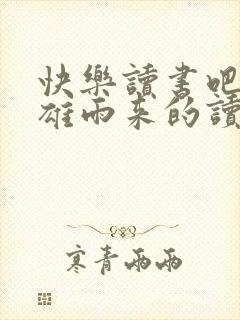 快樂讀書吧
雄雨来的讀
寒青雨雨